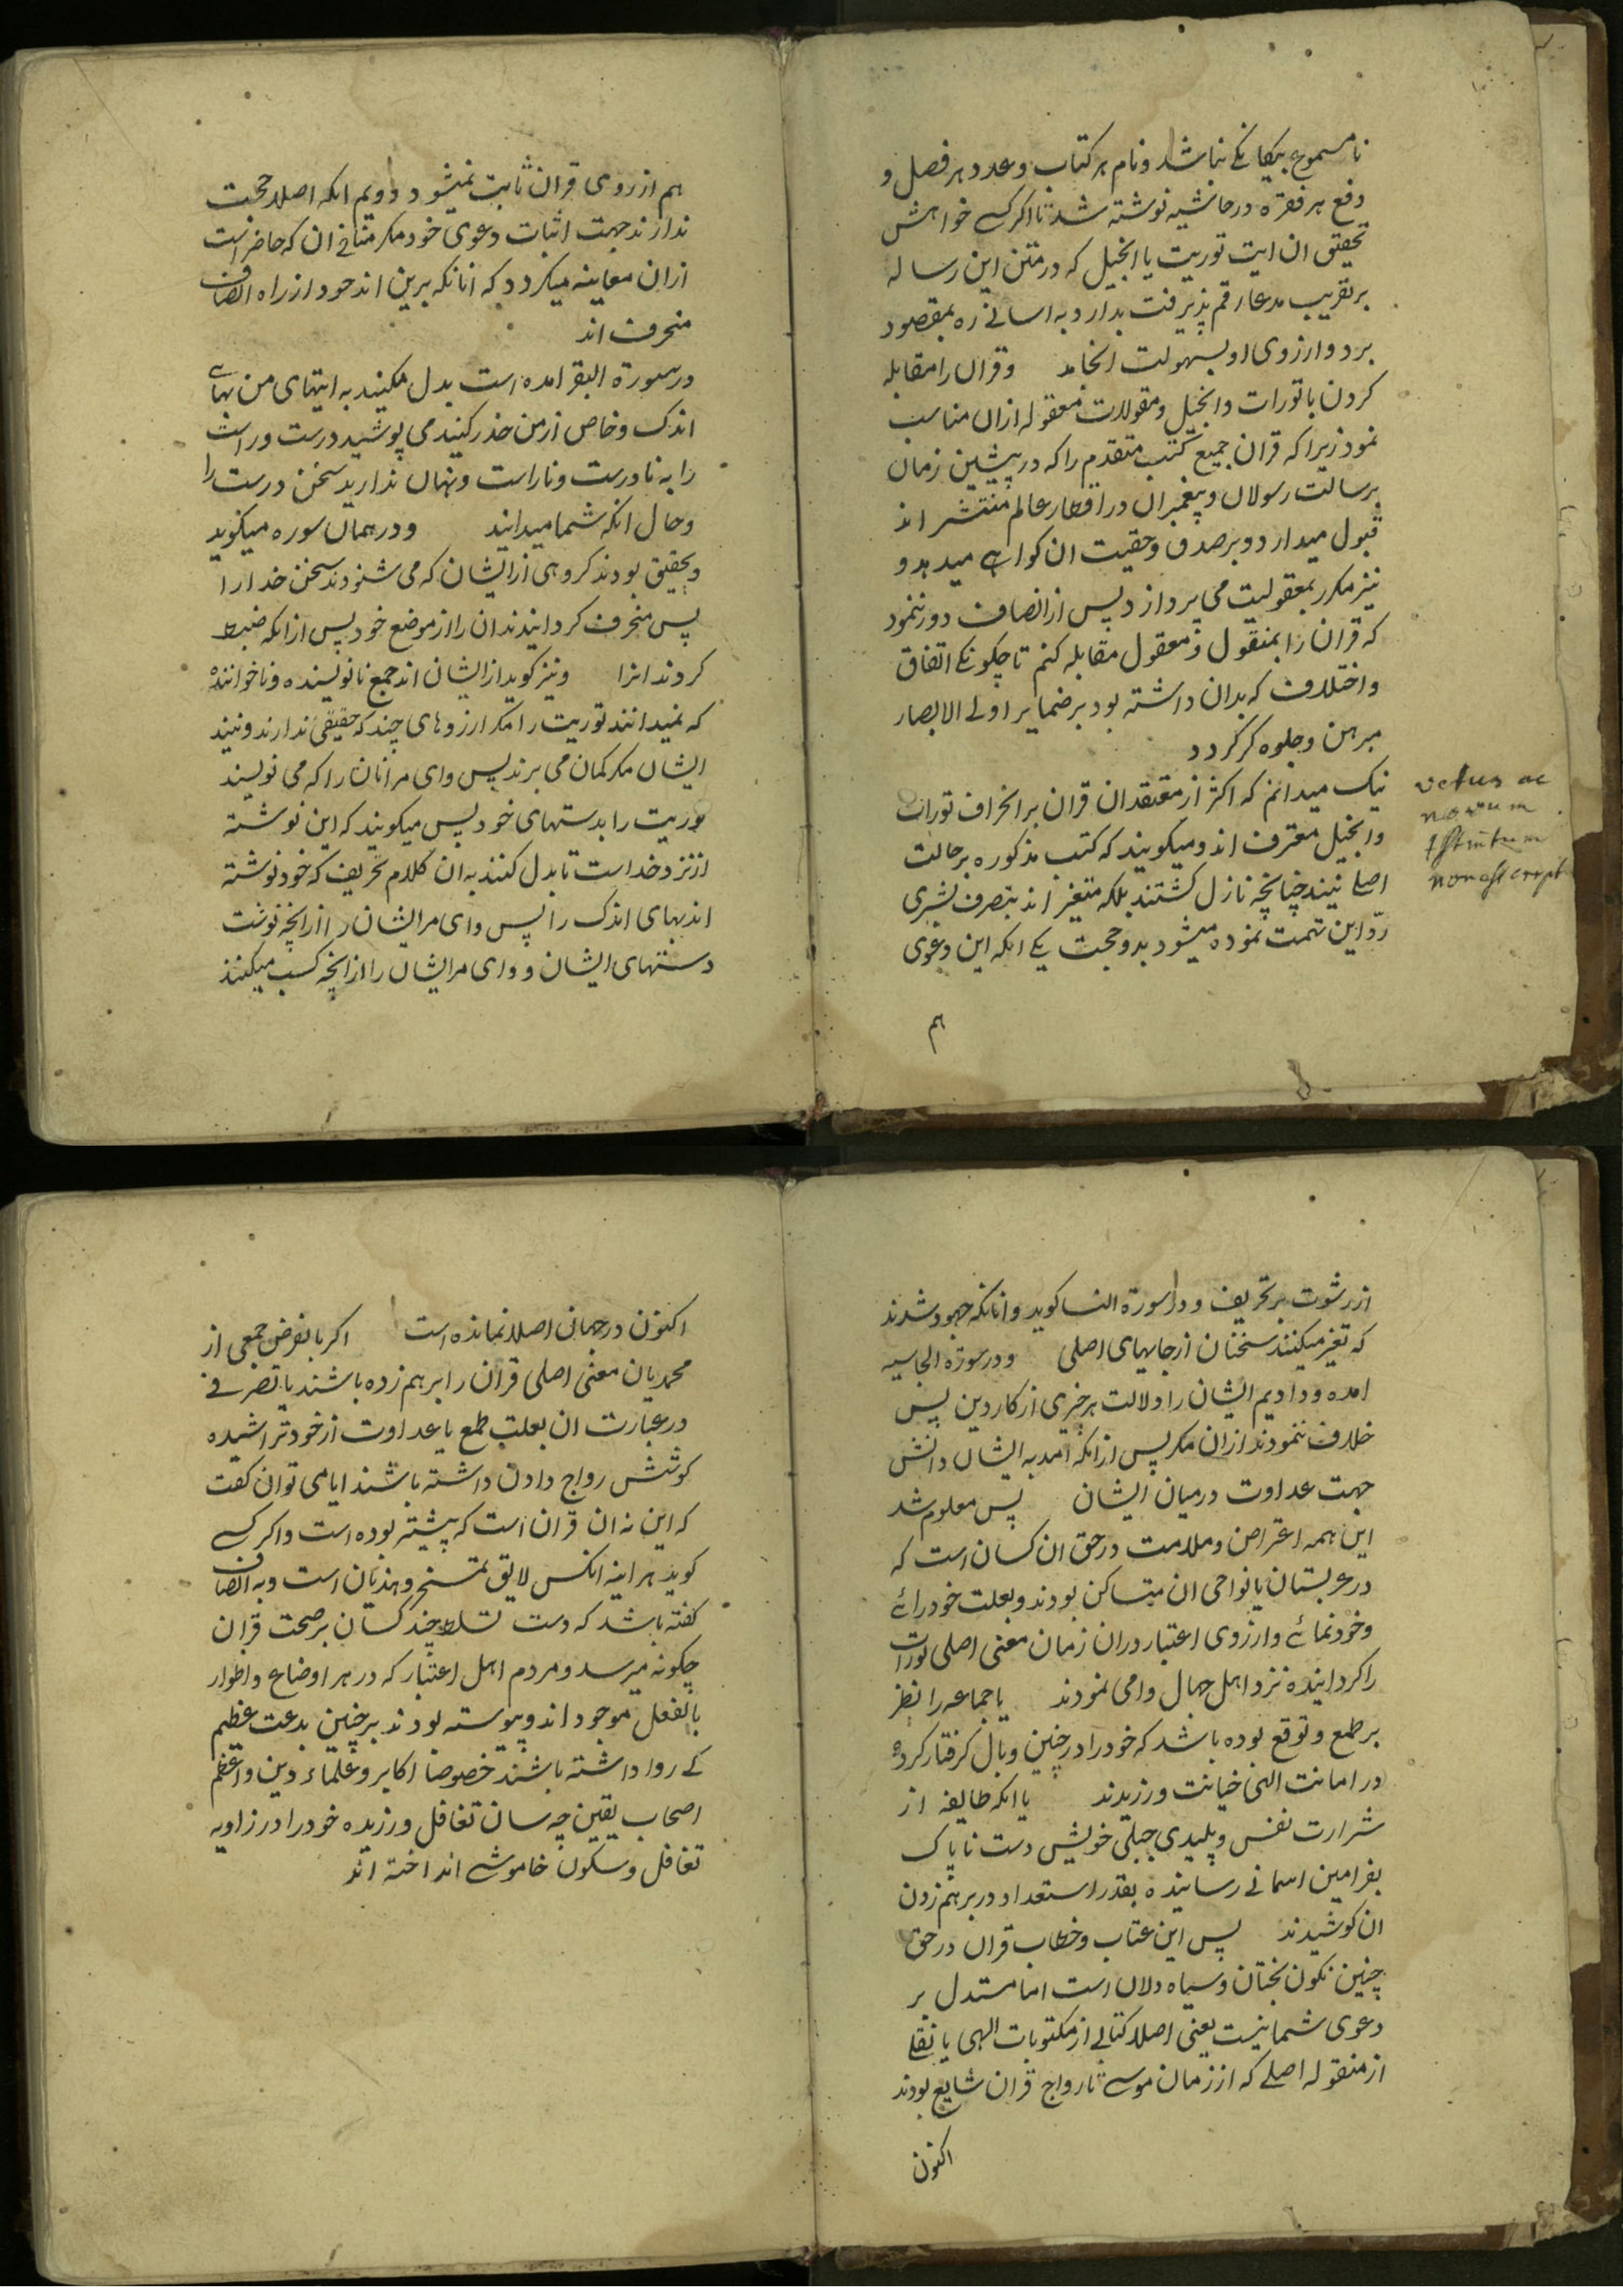 نا مسموع بیکانکی نباشد و نام هر کتاب و عدد هر فصل و
دفع هر فقره در حاشیه نوشته شد تا اکر کسے خواهش
تحقیق ان ایت توریت یا انجیل که در متن این رساله
بر تقریب مدعا رقم پذیرفت بدارد به اسانے ره بمقصود
برد و ارزوی او بسهولت انجامد وقران را مقابله
کردن با تورات و انجیل و مقولات معقوله ازان مناسب
نمود زیرا که قران جمیع کتب متقدم را که در پیشین زمان
برسالت رسولان و پیغمبران در اقطار عالم منتشر اند
قبول میدارد و بر صدق و حقیت ان کواہے میدهد و
نیز مکرر بمعقولیت می پردازد پس از انصاف دور ننمود
که قران را بمنقول و معقول مقابله کنم تا چکونکے اتفاق
و اختلاف که بدان داشته بود بر ضمایر اولے الابصار
مبرهن و جلوه کر کردد
نیک میدانم که اکثر از معتقدان قران بر انحراف تورات
و انجیل معترف اند و میکویند که کتب مذکوره بر حالت
اصلے نیند چنانچه نازل کشتند بلکه متغیر اند بتصرف بشری
ردّ این تهمت نموده میشود بدو حجت یکے انکه این دعوی
هم
vetus ac
novum
tstmtum
non est crrpt
هم از روی قران ثابت نمیشود دویم انکه اصلا حجت
ندارند جهت اثبات دعوی خود مکر متنافے ان که حاضر است
ازان معاینه میکردد که انانکه برین اند خود از راه انصاف
منحرف اند
در سورة البقر امده است بدل مکنید به ایتهای من بهاے
اندک و خاص از من حذر کنید می پوشید درست و راست
را به نادرست و ناراست و پنهان ندارید سخن درست را
و حال انکه شما میدانید و در همان سوره میکوید
و بحقیق بودند کروهی ازایشان که می شنودند سخن خدا را
پس منحرف کردانیدند ان را از موضع خود پس ازانکه ضبط
کردند انرا و نیز کوید از ایشان اند جمع نانویسنده و ناخواننده
که نمیدانند توریت را مکر ارزوهای چند که حقیقی ندارند و نیند
ایشان مکر کمان می برند پس وای مر انان را که می نویسند
توریت را بدستهای خود پس میکویند که این نوشته
از نزد خداست تا بدل کنند به ان کلام تحریف که خود نوشته
اند بهای اندک را پس وای مر ایشان را ازانچه نوشت
دستهای ایشان و وای مر ایشان را ازانچه کسب میکنند
از رشوت بر تحریف و در سورة النسا کوید و انانکه جهود شدند
که تغیر میکنند سخنان از جایهای اصلی و در سورة الجاسیه
امده و دادیم ایشان را دلالت هر خبری از کار دین پس
خلاف ننمودند ازان مکر پس ازانکه امد به ایشان دانش
جهت عداوت در میان ایشان پس معلوم شد
این همه اعتراض و ملامت در حق ان کسان است که
در عربستان یا نواحی ان متساکن بودند و بعلت خود رائے
و خودنمائے و ارزوی اعتبار دران زمان معنی اصلی تورات
را کردانیده نزد اهل جهال وامی نمودند یا جماعه را نظر
بر طمع و توقع بوده باشد که خود را در چنین وبال کرفتار کرده
در امانت الهی خیانت ورزیدند یا انکه طایفه از
شرارت نفس و پلیدی جبلی خویش دست ناپاک
بفرامین اسمانے رسانیده بقدر استعداد در برهم زدن
ان کوشیدند پس این عتاب و خطاب قران در حق
چنین نکون بختان و سیاه دلان است اما مستدل بر
دعوی شما نیست یعنی اصلا کتابے از مکتوبات الهی یا نقلے
از منقوله اصلے که از زمان موسے تا رواج قران شایع بودند
اکنون
اکنون در جهان اصلا نمانده است اکر بالفرض جمعی از
محمدیان معنی اصلی قران را برهم زده باشند یا تصرفے
در عبارت ان بعلت طمع یا عداوت از خود تراشیده
کوشش رواج دادن داشته باشند ایا می توان کفت
که این نه ان قران است که پیشتر بوده است و اکر کسے
کوید هر اینه انکس لایق تمسخر و هذیان است و به انصاف
کفته باشد که دست تسلط چند کسان بر صحت قران
چکونه میرسد و مردم اهل اعتبار که در هر اوضاع و اطوار
بالفعل موجود اند و پیوسته بودند بر چنین بدعت عظیم
کے روا داشته باشند خصوصا اکابر و علماء دین و اعظم
اصحاب یقین چه سان تغافل ورزیده خود را در زاویه
تغافل و سکون خاموشے انداخته اند